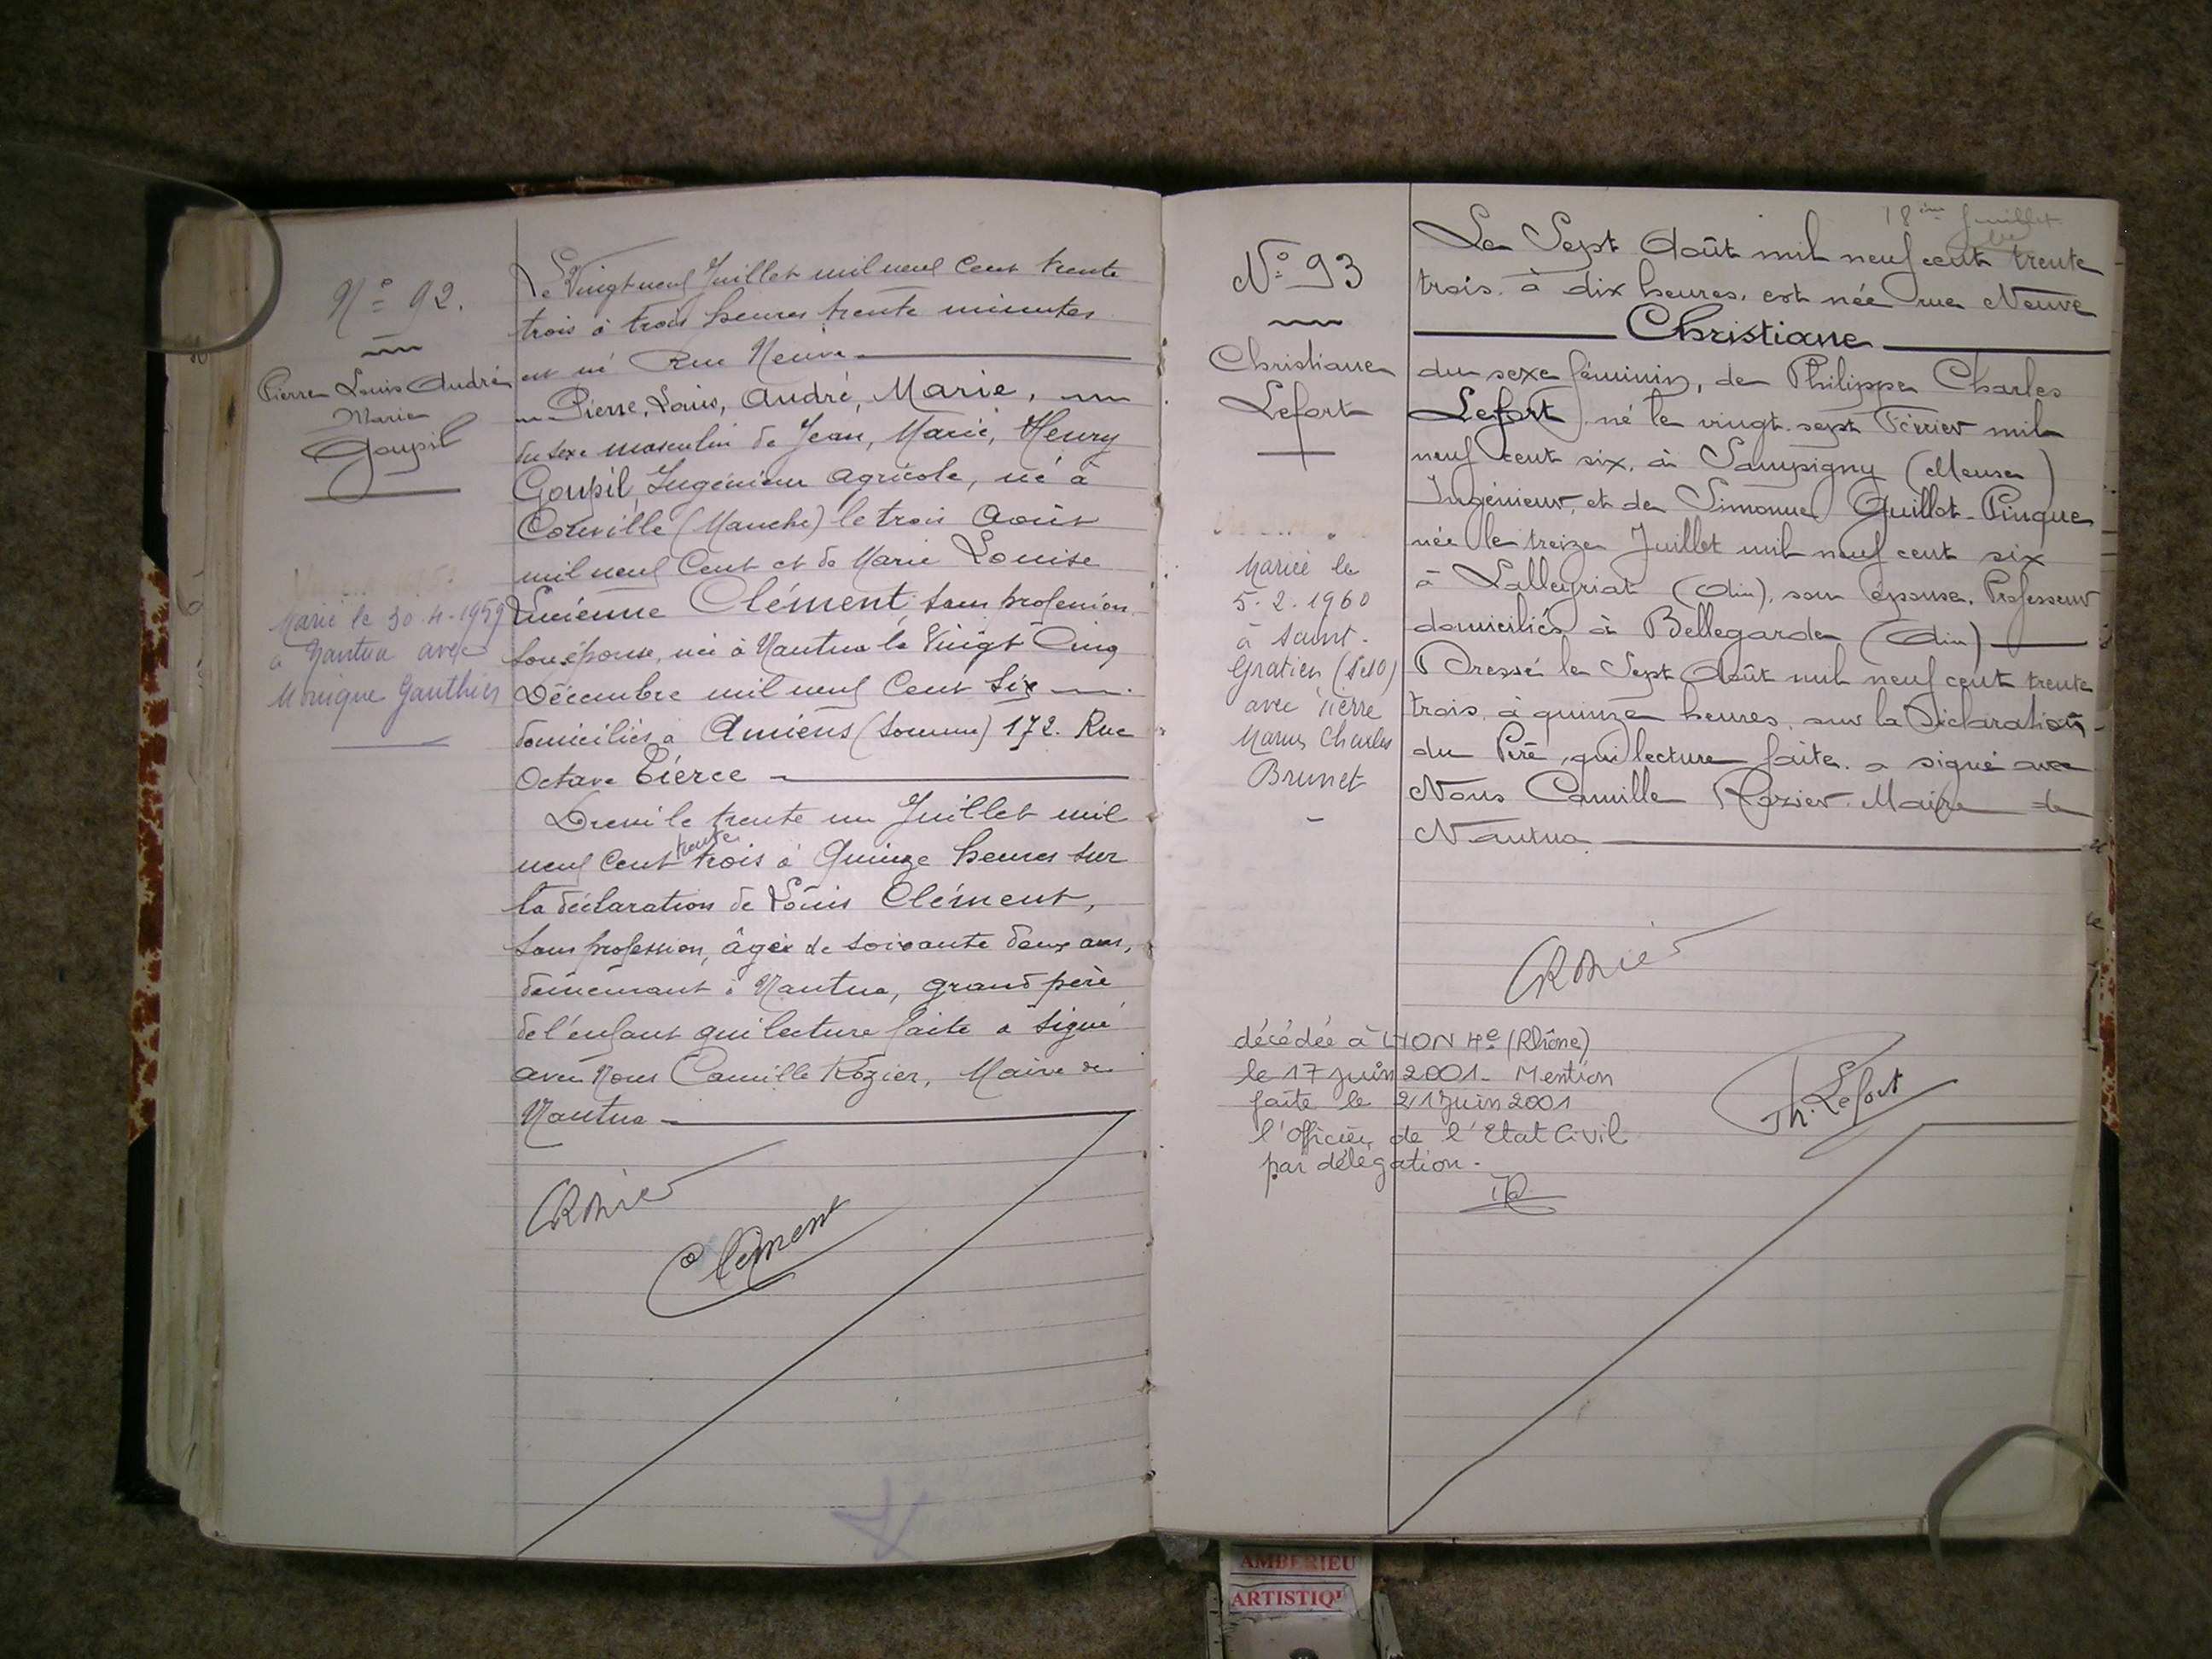 N° 92.
Pierre Louis André
Marie
Goupil
Marié le 30-4-1959
à Nantua avec
Monique Gauthier
Le Vingt neuf Juillet mil neuf cent trente
trois à trois heures trente minutes
est né Rue Neuve
Pierre, Louis, André, Marie,
du sexe masculin de Jean, Marie, Henry
Goupil, Ingénieur agricole, né à
(Manche) le trois Août
mil neuf Cent et de Marie Louise
Lucienne Clément, sans profession
son épouse, née à Nantua le Vingt Cinq
Décembre mil neuf Cent Six
domiciliés à Amiens (Somme) 172. Rue
Octave Tierce
Dressé le trente un Juillet mil
neuf Cent trente trois à Quinze heures sur
la déclaration de Louis Clément,
sans profession, âgé de soixante deux ans,
demeurant à Nantua, grand père
de l'enfant qui lecture faite a signé
avec Nous Camille Rozier, Maire de
Nantua
CRozier
Clément
18ème feuillet
N° 93
Christiane
Lefort
Mariée le
5-2-1960
à Saint-
Gratien (S&O)
avec Pierre
Marius Charles
Brunet
Le Sept Août mil neuf cent trente
trois, à dix heures, est née rue Neuve
Christiane
du sexe féminin, de Philippe Charles
Lefort, né le vingt-sept Février mil
neuf cent six, à Sampigny (Meuse)
Ingénieur, et de Simonne Guillot-Pingue
née le treize Juillet mil neuf cent six
à Lalleyriat (Ain), son épouse, Professeur
domiciliés à Bellegarde (Ain)
Dressé le Sept Août mil neuf cent trente
trois, à quinze heures, sur la Déclaration
du Père, qui lecture faite, a signé avec
Nous Camille Rozier, Maire de
Nantua
CRozier
Ph. Lefort
décédée à LYON 4e (Rhône)
le 17 juin 2001 - Mention
faite le 21 Juin 2001
l'Officier de l'Etat Civil
par délégation.
AMBERIEU
ARTISTIQ